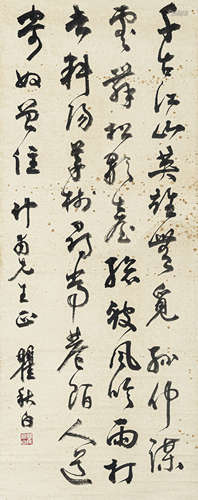 千古江山英雄無覓孫仲謀
處舞榭歌臺總被風吹雨打
去斜陽草樹尋常巷陌人道
寄奴曾住 先生正 瞿秋白